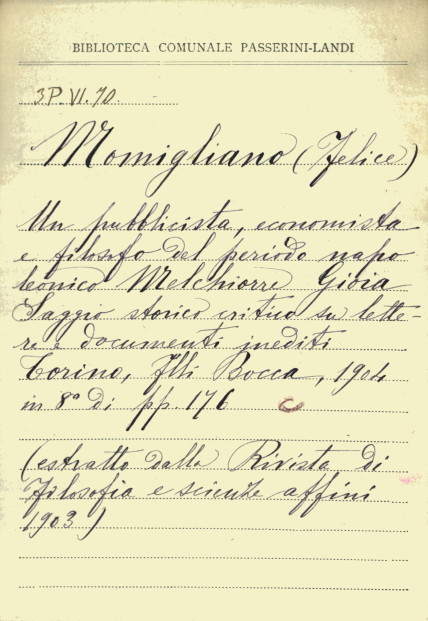 BIBLIOTECA COMUNALE PASSERINI-LANDI
3P. VI. 70.
Momigliano (Felice)
Un pubblicista, economista
e filosofo del periodo napo
leonico Melchiorre Gioia
Saggio storico critico su lette-
re e documenti inediti
Torino, Flli Bocca, 1904
in 8° di pp. 176 C
(estratto dalla Rivista di
Filosofia e scienze affini
1903)